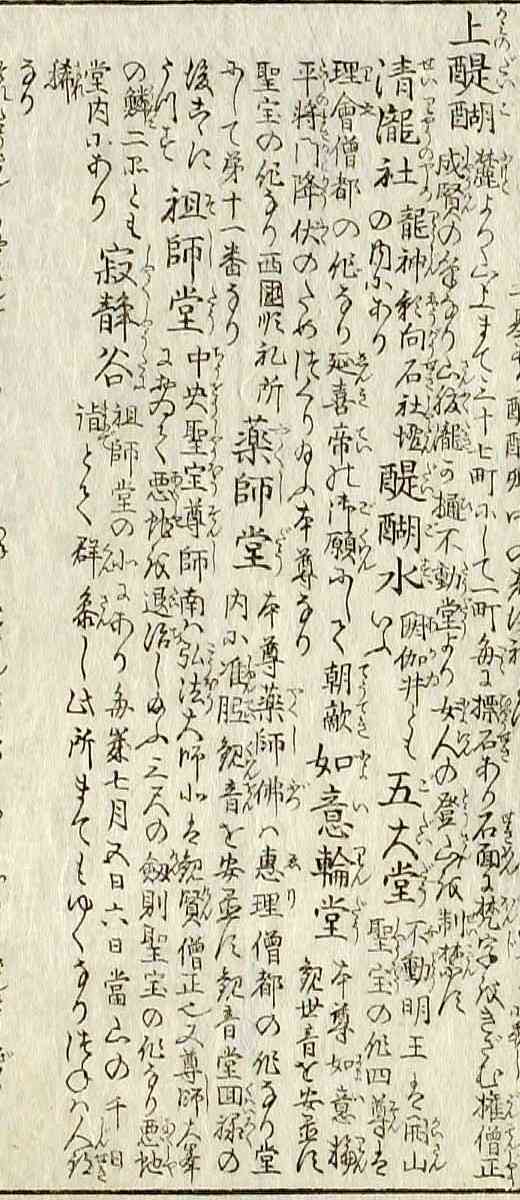 上醍醐 麓より山上まで三十七町にして一町毎に標石あり石面に梵字をきざむ権僧正
成賢の筆なり山路瀧の樋不動堂より女人の登山を制禁す
清瀧社 龍神影向石社壇の内にあり 醍醐水 閼伽井ともいふ 五大堂 不動明王は開山聖宝の作四尊は
理會僧都の作なり延喜帝の御願にして朝敵
平将門降伏のためつくり給ふ本尊なり 如意輪堂 本尊如意輪観世音を安置す
聖宝の作なり西國順礼所にして第十一番なり 薬師堂 本尊薬師佛は惠理僧都の作なり堂内に准胝観音を安置す観音堂回禄の
後こゝにうつす 祖師堂 中央聖宝尊師南は弘法大師北は観賢僧正也又尊師大峯にて悪地を退治し給ふ三尺の劔則聖宝の作なり悪地
の鱗二つとも堂内にあり 寂静谷 祖師堂の北にあり毎歳七月五日六日當山の千日詣とて群参し此所までもゆくなりつねは人跡
稀なり